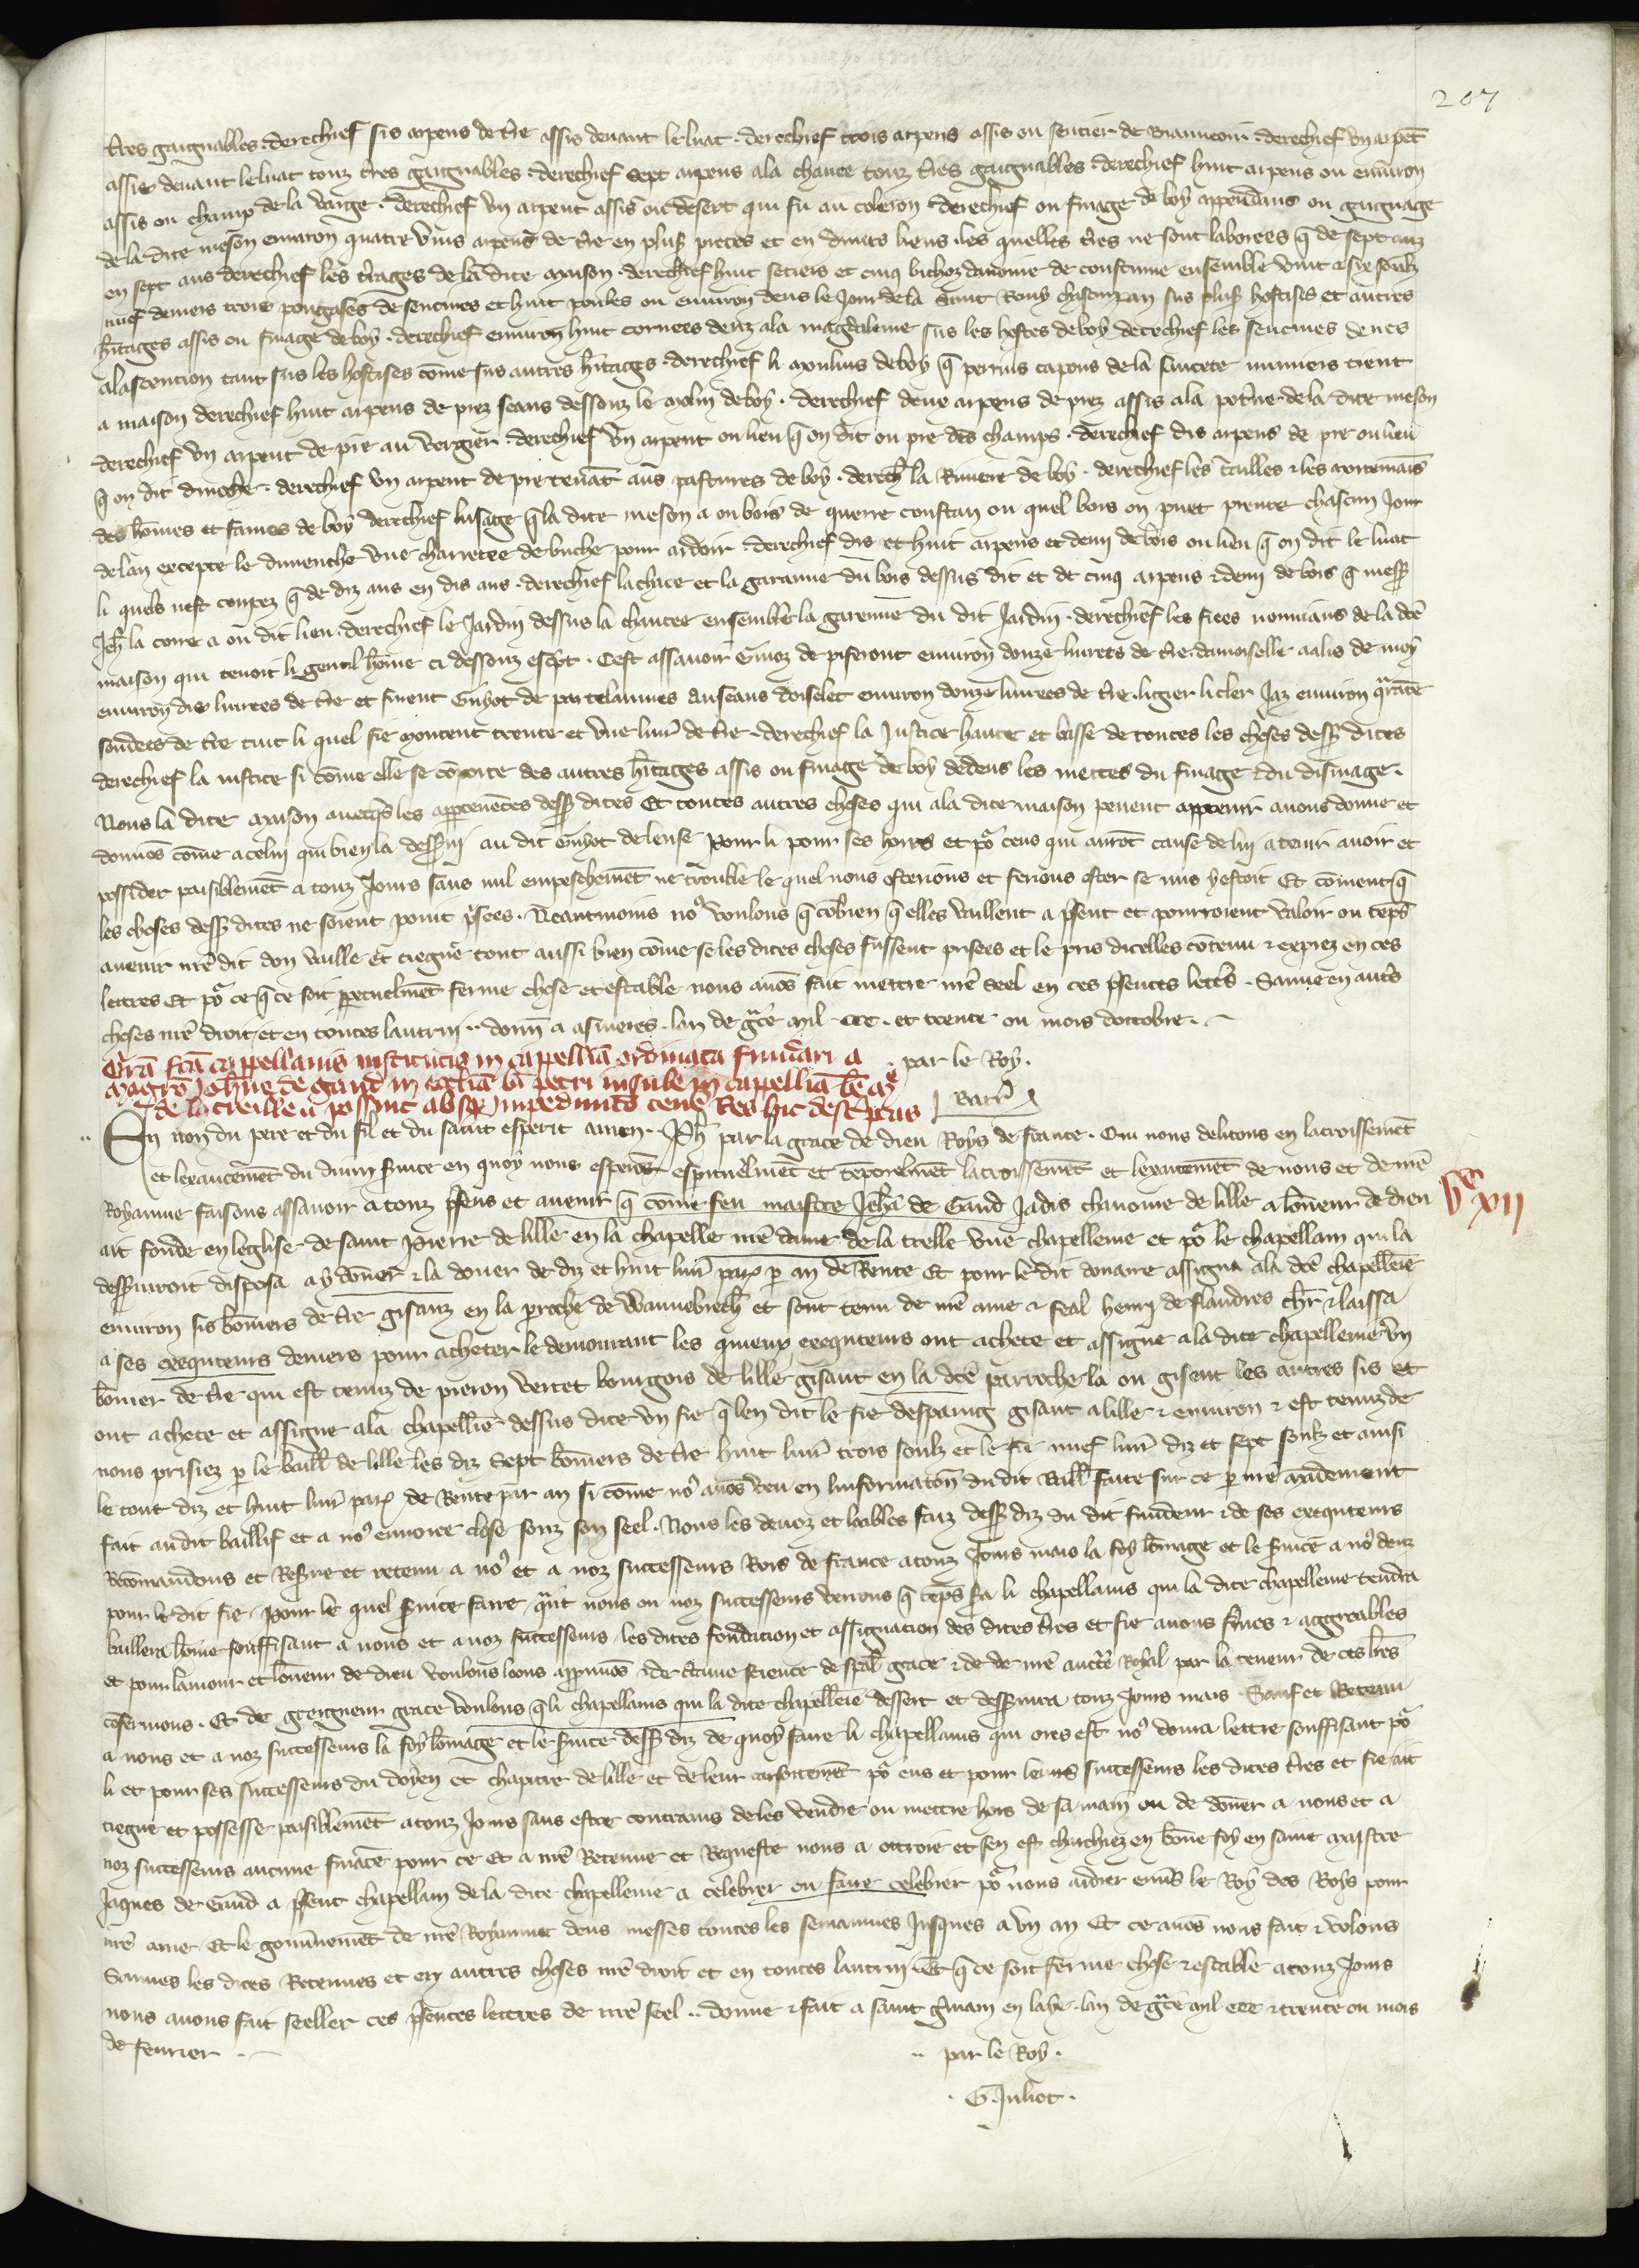 207
t̄res gaignables . derechief sis arpens de t̄re assis deuant le luat . derechief trois arpens assis ou sentier de . derechief vn arpēt
assis deuant le luat touz t̄res gaignables . derechief sept arpens a la chauce touz t̄res gaignables . derechief huit arpens ou enuiron
assis ou champ de la . derechief vn arpent assis ou desert qui fu au coleron derechief ou finage de boy appendans ou gaignage
de la dite meson enuiron quatre vins arpens de t̄re en plus pieces et en diuers lieus . les quelles t̄res ne sont laborees q̄ de sept anz
en sept ans derechief les t̄rages de la dite maison . derechief huit setiers et cinq bichoz dauoine de coustume ensemble vint et sis soulz
nuef deniers trois de et huit poules ou enuiron deus le Jour de la saint Remy chascun an sus plus hostises et autres
h̄itages assis ou finage de boy . derechief enuiron huit cornees deuz a la magdaleine sus les hostes de boy derechief les deues
a lascention tant sus les hostises cōme sus autres h̄itages . derechief li moulins de boy q̄ perrins capons de la tient
a maison derechief huit arpens de prez seans dessouz le molin de boy . derechief deus arpens de prez assis a la pot̄ne de la dite meson
derechief vn arpent de pre au vergier . derechief vn arpent ou lieu q̄ on dit ou pre des champs . derechief dis arpens de pre ou lieu
q̄ on dit . derechief vn arpent de pre tenāt aus pastures de boy . derech̄ la Riuiere de boy . derechief les tailles et les mortemais
des hōmes et fames de boy derechief lusage q̄ la dite meson a ou bois de ou quel bois on puet prenre chascun Jour
de lan excepte le dimenche vne charretee de buche pour ardoir . derechief dis et huit arpens et demi de bois ou lieu q̄ on dit le luat
li quels nest coupez q̄ de diz ans en dis ans . derechief la chace et la garanne du bois dessus dit et de cinq arpens et demi de bois q̄ mess̄
Jeh̄ la a ou dit lieu . derechief le Jardin dessus la chaucee ensemble la garenne du dit Jardin . derechief les fiees de la dc̄e
maison qui tenoit li gentil hōme ci dessouz esc̄pt . Cest assauoir Guioz de piseront enuiron douze liurees de t̄re . damoiselle aalis de moy
enuiron dis liurees de t̄re et furent Guyot de Anseans doiselet enuiron douze liurees de t̄re . ligier li cler Jaz enuiron q̄rāte
soudees de t̄re tuit li quel fie montent trente et vne liur̄ de t̄re . derechief la Justice haute et basse de toutes les choses dess̄ dites
derechief la iustice si cōme elle se cōporte des autres h̄itages assis ou finage de boy dedens les mettes du finage et du dismage .
Nous la dite maison auecq̄s les apptenētes dess̄ dites et toutes autres choses qui a la dite maison peuent apptenir auons donne et
donnōs cōme a celui qui bien la dess̄ui au dit Guyot de Pour li pour ses hoirs et po᷑ ceus qui aurōt cause de lui a tenir auoir et
possider paisiblemēt a touz Jours sans nul empeschemēt ne trouble le quel nous osterions et ferions oster se nus y estoit Et cōment q̄
les choses dess̄ dites ne soient point p̄sees . Neantmoins no᷒ voulons q̄ cōbien q̄ elles vaillent a p̄sent et pourroient valoir ou tēps
auenir nr̄e dit don vaille et tiegne tout aussi bien cōme se les dites choses fussent prisees et le pris dicelles cōtenu et exprez en ces
lettres Et po᷑ ce q̄ ce soit ppetuelmēt ferme chose et estable nous auōs fait mettre nr̄e seel en ces p̄sentes lettr̄s . Sauue en aut̄s
choses nr̄e droit et en toutes lautrui . donn̄ a asnieres . lan de gr̄ce mil ccc . et trente ou mois doctobre .
. par le Roy .
Barr̄
Gr̄a fcā cappellanis institutis in cappellīa ordinata fundari a
magrō Joh̄ne de gand in eccl̄ia bī petri insule in cappellīa bē m̄
de la treille ut possint absq̄ impedimēto tenē Res hic descptas
En non du pere et du fil et du saint esperit amen . Ph̄ par la grace de dieu Roys de france . Qui nous delitons en lacroissemēt
et lexaucemēt du diuin s̄uice en quoy nous esperōs espirituelmēt et tēporelmēt lacroissemēt et lexaucemēt de nous et de nr̄e
Royaume faisons assauoir a touz p̄sens et auenir q̄ cōme feu maistre Jehā de Gand Jadis chanoine de lille a lōneur de dieu
ait fonde en leglise de saint Pierre de lille en la chapelle nr̄e dame de la treille vne chapellenie et po᷑ le chapellain qui la
dess̄uiroit disposa a y dōner et la douer de diz et huit liur̄ par᷒ p an de Rente Et pour le dit douaire assigna a la dc̄e chapellenīe
enuiron sis bōniers de t̄re gisanz en la proche de Wannebrech̄ et sont tenu de nr̄e ame et feal henri de flandres ch̄r et laissa
a ses exequteurs deniers pour acheter le demourant les quieux exequteurs ont achete et assigne a la dite chapellenie vn
bōnier de t̄re qui est tenuz de pieron vertet bourgois de lille gisant en la dc̄e parroche la ou gisent les autres sis et
ont achete et assigne a la chapellīe dessus dite vn fie q̄ len dit le fie despaing gisant a lille et enuiron et est tenuz de
nous prisiez p le baill̄ de lille les diz sept bōniers de t̄re huit liur̄ trois soulz et le fie nuef liur̄ diz et sept soulz et ainsi
le tout diz et huit liur̄ par᷒ de Rente par an si cōme no᷒ auōs veu en linformatōn du dit Baill̄ faite sur ce p nr̄e mādement
fait au dit baillif et a no᷒ enuoiee close souz son seel . Nous les deuoz et loables faiz dess̄ diz du dit fundeur et de ses exequteurs
Recōmandons et Res̄ue et retenu a no᷒ et a noz successeurs Rois de france a touz Jours mais la foy lōmage et le s̄uice a no᷒ deuz
pour le dit fie . Pour le quel s̄uice faire q̄nt nous ou noz successeurs verrons q̄ tēps s̄a li chapellains qui la dite chapellenie tendra
baillera hōme souffisant a nous et a noz successeurs . les dites fondacion et assignacion des dites t̄res et fie auons fermes et aggreables
et pour lamour et lōneur de dieu voulons loons appuōs et de c̄taine science de sp̄al grace et de de nr̄e auctē Royal par la teneur de ces lr̄es
cōfermons . Et de greigneur grace voulons q̄ li chapellains qui la dite chapellenīe dessert et dess̄uira touz Jours mais . Sauf et Retenu
a nous et a noz successeurs la foy lōmage et le s̄uice dess̄ diz de quoy faire li chapellains qui ores est no᷒ donra lettre souffisant po᷑
li et pour ses successeurs du doyen et chapitre de lille et de leur assentemēt po᷑ eus et pour leurs successeurs les dites t̄res et fie ait
tiegne et possesse paisiblemēt a touz Jours sans estre contrains de les vendre ou mettre hors de sa main ou de dōner a nous et a
noz successeurs aucune fināce pour ce Et a nr̄e Retenue et Requeste nous a ottroie et sen est charchiez en bōne foy en saint maistre
Jaques de Gand a p̄sent chapellain de la dite chapellenie a celebrer ou faire celebrer po᷑ nous aidier enūs le Roy des Roys pour
nr̄e ame Et le goūnement de nr̄e Royaume deus messes toutes les semaines Jusques a vn an Et ce auōs nous fait et volons
Sauues les dites Retenues et en autres choses nr̄e droit et en toutes lautrui . Et q̄ ce soit ferme chose et estable a touz Jours
nous auons fait seeller ces p̄sentes lettres de nr̄e seel . donne et fait a saint g̃main en laye . lan de gr̄ce mil ccc et trente ou mois
de feurier .
.. par le Roy .
. G . Juliot .
vᶜ xii